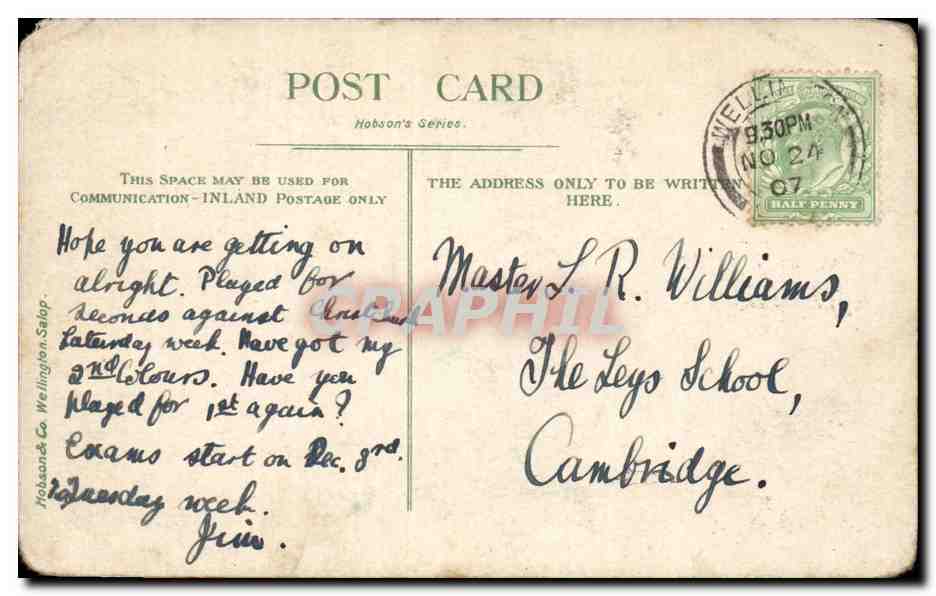 POST CARD
Hobson's Series.
THIS SPACE MAY BE USED FOR
COMMUNICATION - INLAND POSTAGE ONLY
THE ADDRESS ONLY TO BE WRITTEN
HERE.
9.30PM
NO 24
07
HALF PENNY
Hope you are getting on
alright. Played for
seconds against Christchurch
Saturday week. Have got my
2nd Colours. Have you
played for 1st again?
Exams start on Dec. 3rd.
Tuesday week.
Jim.
Master L. R. Williams,
The Leys School,
Cambridge.
Hobson & Co. Wellington. Salop.
CPAPHIL